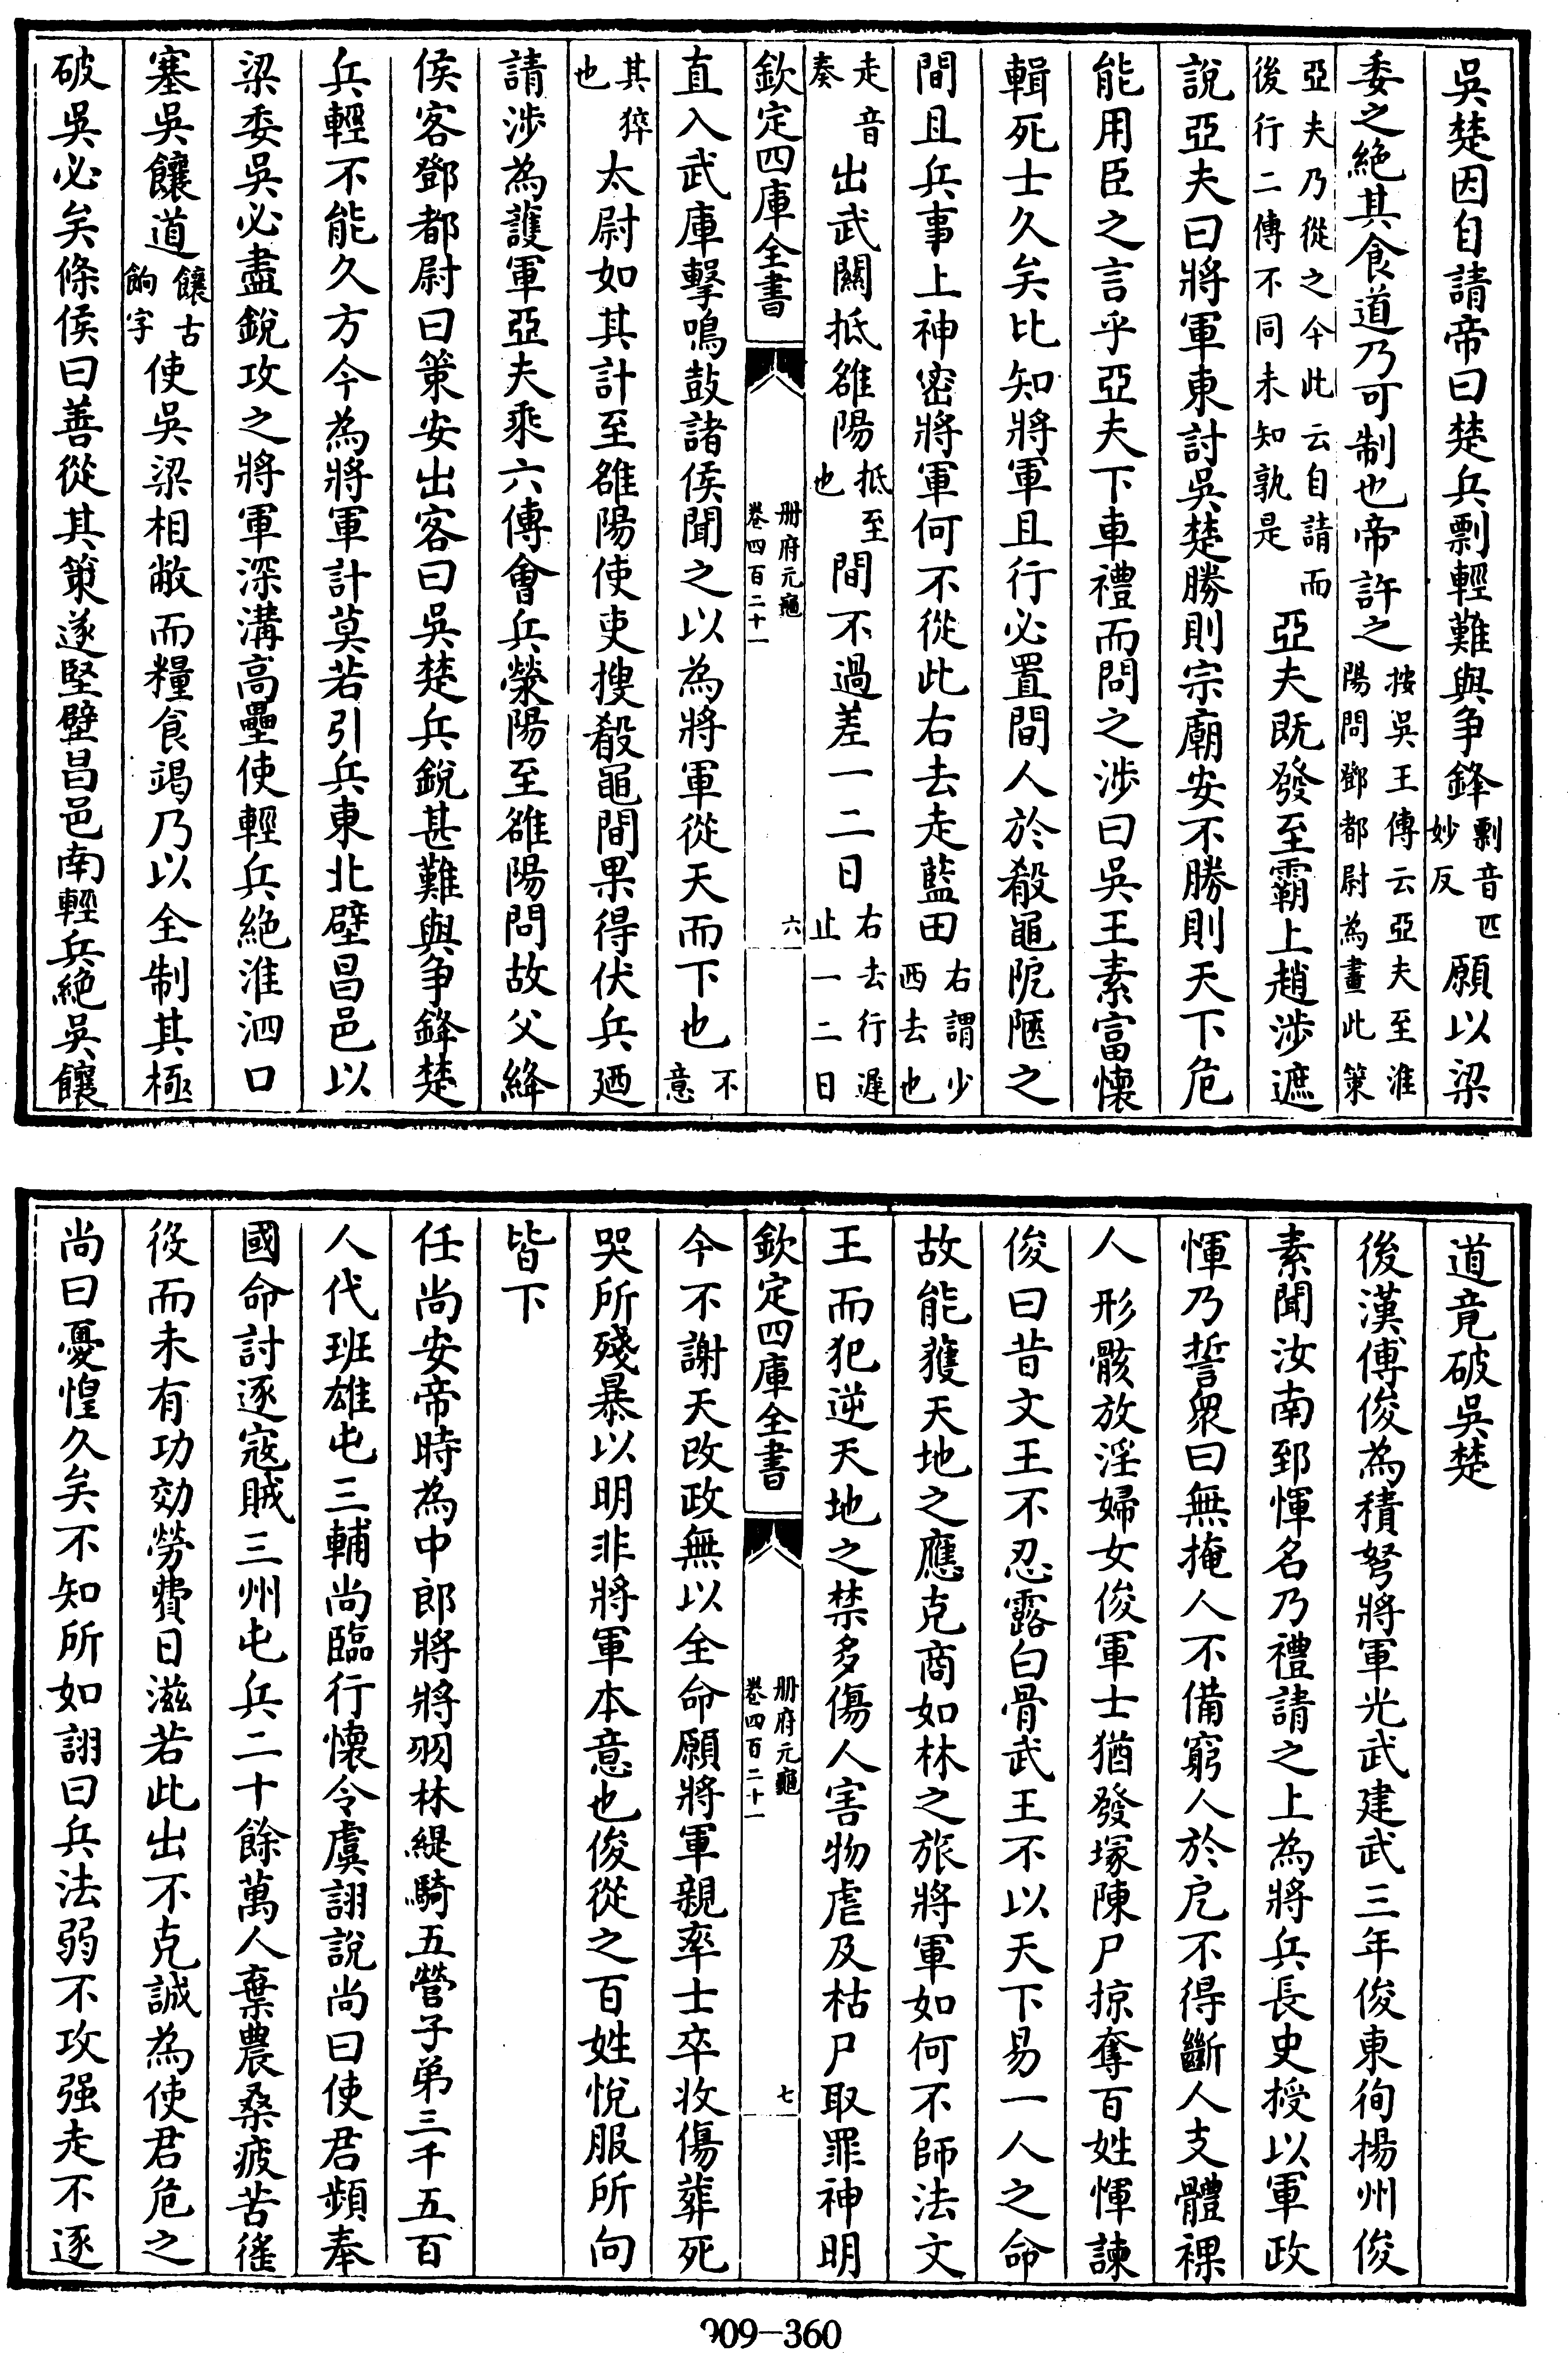 吳楚因自請帝曰楚兵剽輕難與争鋒剽音匹妙反願以梁
委之絶其食道乃可制也帝許之按吳王傳云亞夫至淮陽問鄧都尉為畫此策
亞夫乃從之今此云自請而後行二傳不同未知孰是亞夫既發至霸上趙涉遮
說亞夫曰將軍東討吳楚勝則宗廟安不勝則天下危
能用臣之言乎亞夫下車禮而問之涉曰吳王素富懷
輯死士久矣比知將軍且行必置間人於殽黽阨陿之
間且兵事上神密將軍何不從此右去走藍田右謂少西去也
走音奏出武關抵雒陽抵至也間不過差一二日右去行遲止一二日
欽定四庫全書 册府元龜卷四百二十一 六
直入武庫擊鳴鼓諸侯聞之以為將軍從天而下也不意
其猝也太尉如其計至雒陽使吏搜殽黽間果得伏兵廼
請涉為護軍亞夫乘六傳會兵滎陽至雒陽問故父絳
侯客鄧都尉曰策安出客曰吳楚兵銳甚難與争鋒楚
兵輕不能久方今為將軍計莫若引兵東北壁昌邑以
梁委吳必盡銳攻之將軍深溝高壘使輕兵絶淮泗口
塞吳饟道饟古餉字使吳梁相敝而糧食竭乃以全制其極
破吳必矣條侯曰善從其策遂堅壁昌邑南輕兵絶吳饟
道竟破吳楚
後漢傅俊為積弩將軍光武建武三年俊東徇揚州俊
素聞汝南郅惲名乃禮請之上為將兵長史授以軍政
惲乃誓衆曰無掩人不備窮人於戹不得斷人支體裸
人形骸放淫婦女俊軍士猶發塚陳尸掠奪百姓惲諫
俊曰昔文王不忍露白骨武王不以天下易一人之命
故能獲天地之應克商如林之旅將軍如何不師法文
王而犯逆天地之禁多傷人害物虐及枯尸取罪神明
欽定四庫全書 册府元龜卷四百二十一 七
今不謝天改政無以全命願將軍親率士卒收傷葬死
哭所殘暴以明非將軍本意也俊從之百姓悅服所向
皆下
任尚安帝時為中郎將將羽林緹騎五營子弟三千五百
人代班雄屯三輔尚臨行懷令虞詡說尚曰使君頻奉
國命討逐寇賊三州屯兵二十餘萬人棄農桑疲苦徭
役而未有功効勞費日滋若此出不克誠為使君危之
尚曰憂惶久矣不知所如詡曰兵法弱不攻强走不逐
909-360